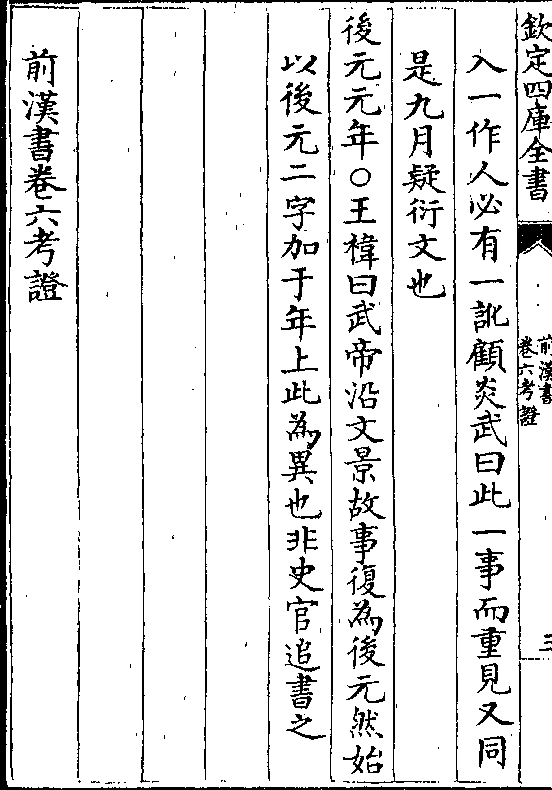 欽定四庫全書
前漢書
卷六考證
三
入一作人必有一訛顧炎武曰此一事而重見又同
是九月疑衍文也
後元元年○王禕曰武帝沿文景故事復為後元然始
以後元二字加于年上此為異也非史官追書之
前漢書卷六考證